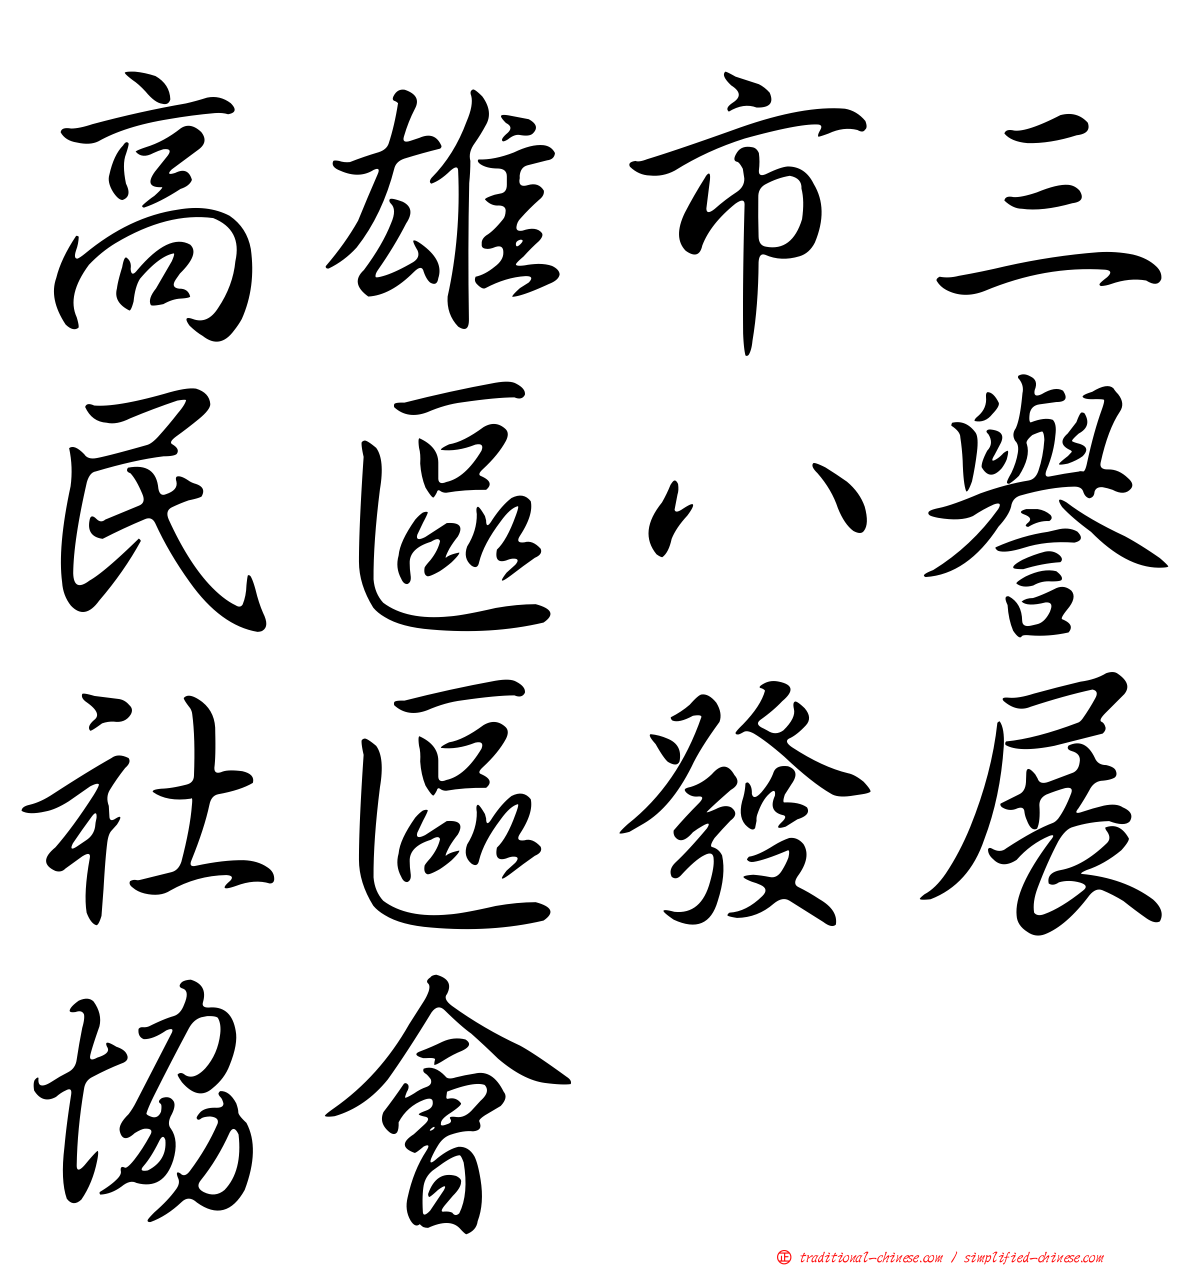 高雄市三
民區八譽
社區發展
協會
㊣ traditional-chinese.com / simplified-chinese.com